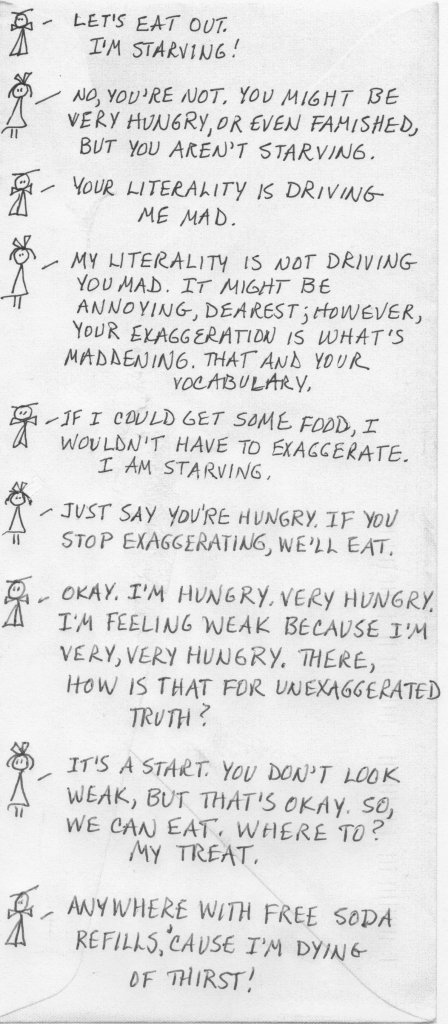 LET'S EAT OUT.
I'M STARVING!
NO, YOU'RE NOT. YOU MIGHT BE
VERY HUNGRY, OR EVEN FAMISHED,
BUT YOU AREN'T STARVING.
YOUR LITERALITY IS DRIVING
ME MAD.
MY LITERALITY IS NOT DRIVING
YOU MAD. IT MIGHT BE
ANNOYING, DEAREST; HOWEVER,
YOUR EXAGGERATION IS WHAT'S
MADDENING. THAT AND YOUR
VOCABULARY.
IF I COULD GET SOME FOOD, I
WOULDN'T HAVE TO EXAGGERATE.
I AM STARVING.
JUST SAY YOU'RE HUNGRY. IF YOU
STOP EXAGGERATING, WE'LL EAT.
OKAY. I'M HUNGRY. VERY HUNGRY.
I'M FEELING WEAK BECAUSE I'M
VERY, VERY HUNGRY. THERE,
HOW IS THAT FOR UNEXAGGERATED
TRUTH?
IT'S A START. YOU DON'T LOOK
WEAK, BUT THAT'S OKAY. SO,
WE CAN EAT. WHERE TO?
MY TREAT.
ANYWHERE WITH FREE SODA
REFILLS, 'CAUSE I'M DYING
OF THIRST!